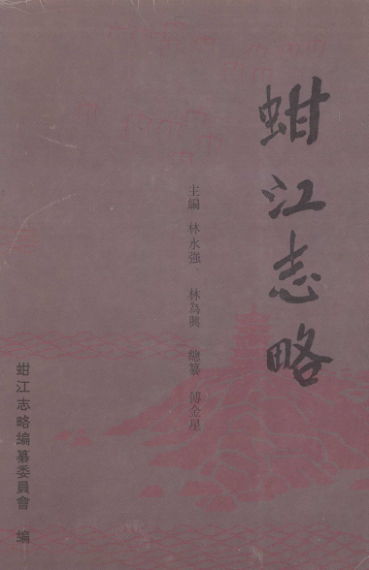 蚶江志略
主編 林水强 林為興 總纂 傅金星
蚶江志略編纂委員會 編